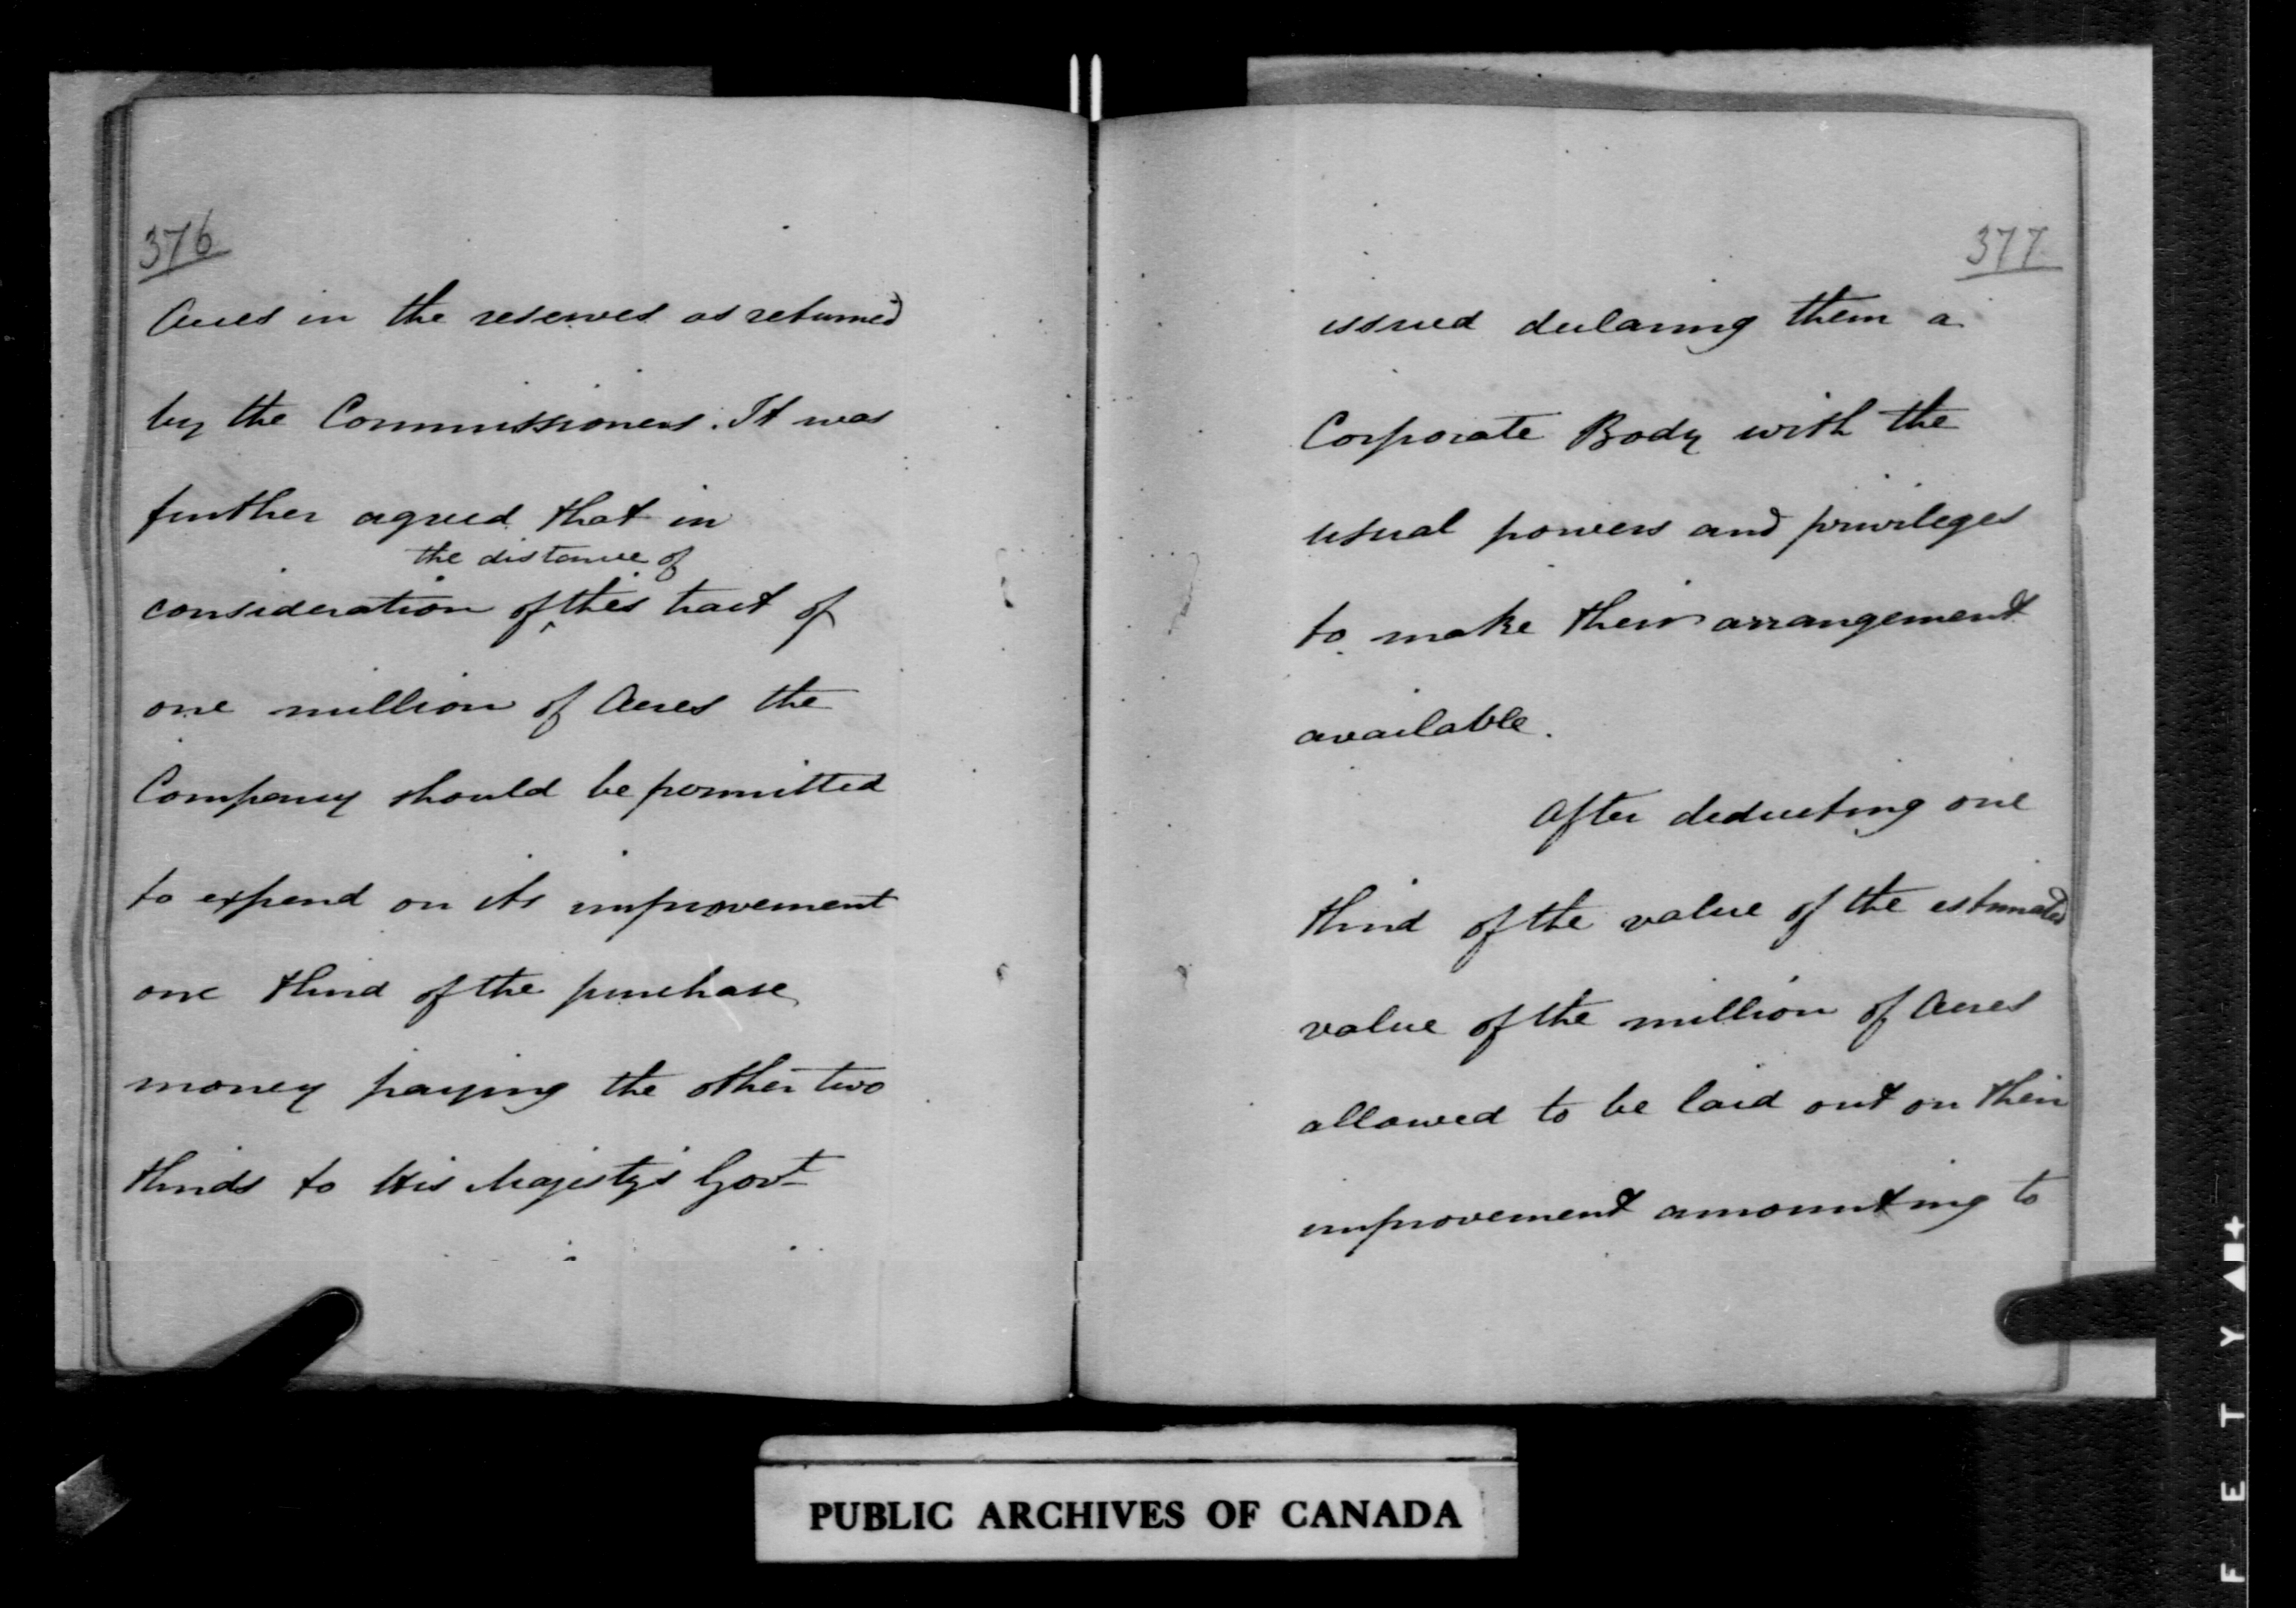 376
Acres in the reserves as returned
by the Commissioners. It was
further agreed that in
the distance of
consideration of this tract of
one million of Acres the
Company should be permitted
to expend on its improvement
one third of the purchase
money paying the other two
thirds to His Majesty's Govt
377
issued declaring them a
Corporate Body with the
usual powers and privileges
to make their arrangement
available.
After deducting one
third of the value of the estimated
value of the million of Acres
allowed to be laid out on their
improvement amounting to
PUBLIC ARCHIVES OF CANADA
F E T Y